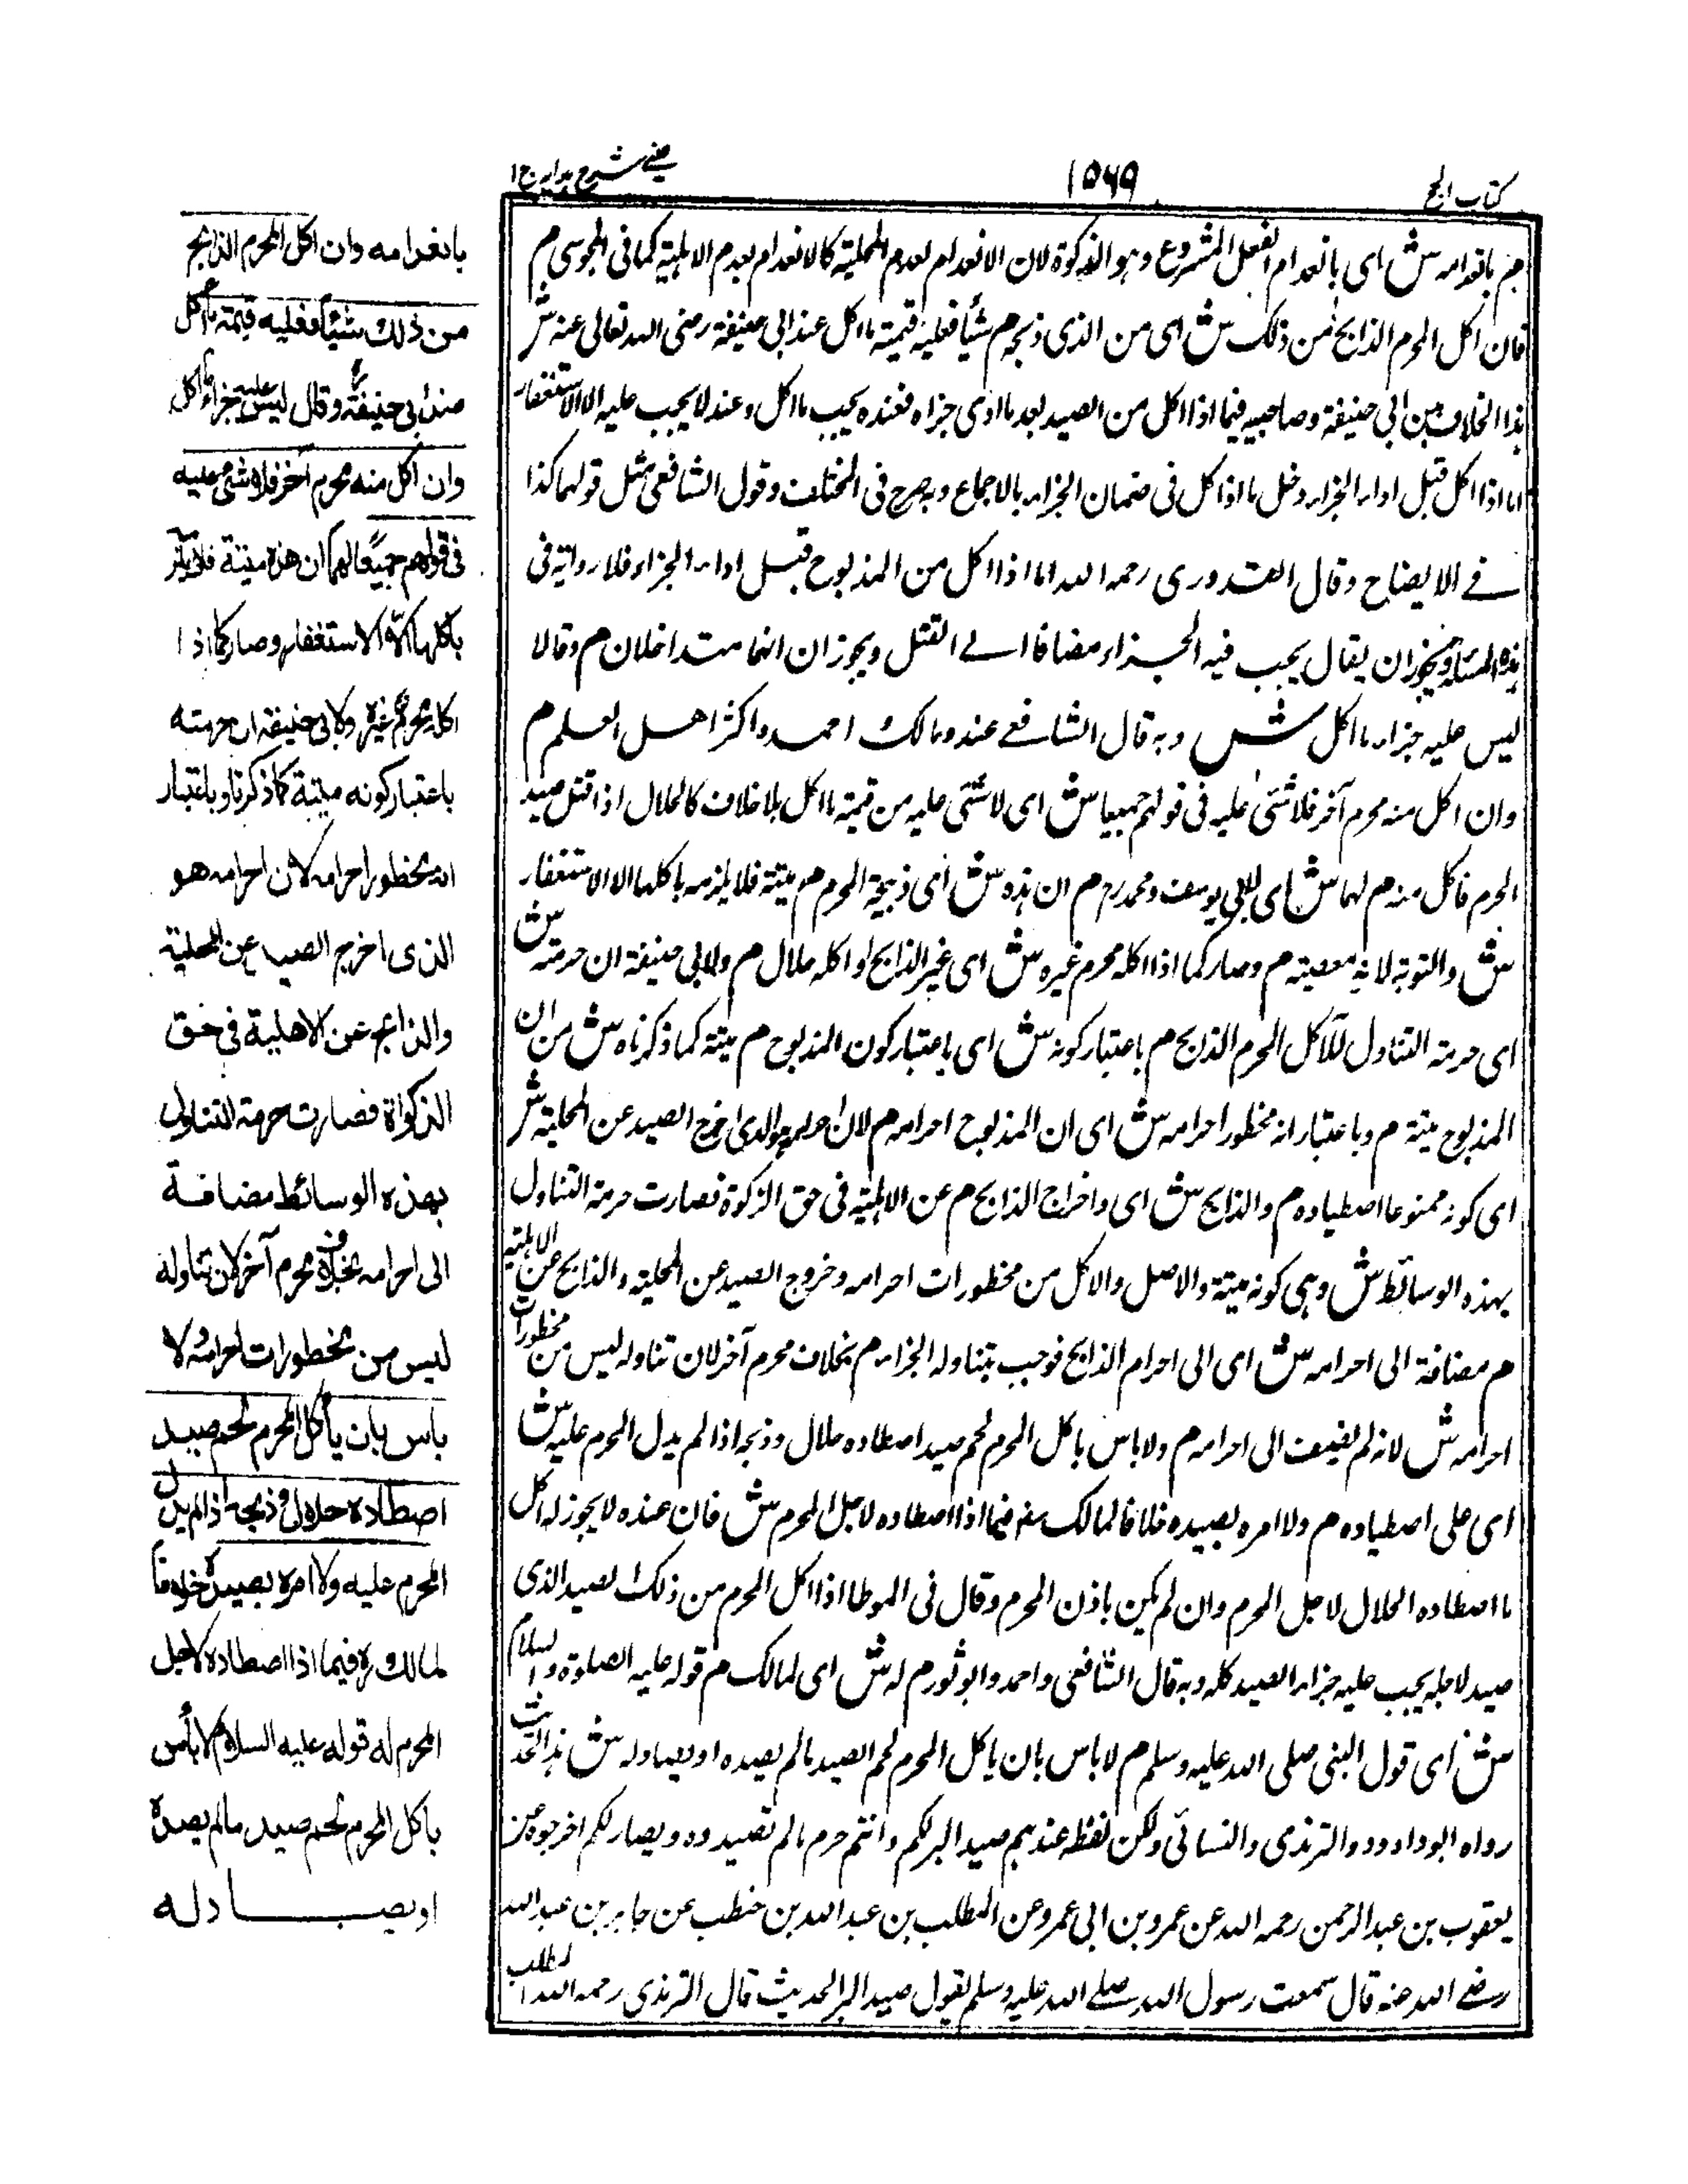 كتاب الحج
١٥٦٩
عينى شرح هدايه ج ١
م بانعدامه ش اى بانعدام الفعل المشروع وهو الذكوة لان الانعدام لعدم المحلية كالانعدام بعدم الاهلية كما فى المجوسى م
فان اكل المحرم الذابح من ذلك ش اى من الذى ذبحه م شيأ فعليه قيمة ما اكل عند ابى حنيفة رضى الله تعالى عنه ش
هذا الخلاف بين ابى حنيفة وصاحبيه فيما اذا اكل من الصيد بعد ما ادى جزاه فعنده يجب ما اكل وعند لا يجب عليه الا الاستغفار
اما اذا اكل قبل اداء الجزاء دخل ما اذا كل فى ضمان الجزاء بالاجماع وبه صرح فى المختلف وقول الشافعى مثل قولهما كذا
فے الايضاح وقال القدورى رحمه الله اما اذا اكل من المذبوح قبل اداء الجزاء فلا رواية فى
هذه المسئلة ويجوز ان يقال يجب فيه الجزاء مضافا الے القتل ويجوز ان انهما متداخلان م وقالا
ليس عليه جزاء ما اكل ش وبه قال الشافعے عند ومالك احمد واكثر اهل العلم م
وان اكل منه محرم آخر فلا شئى عليه فى قولهم جميعا ش اى لا شئى عليه من قيمة ما اكل بلا خلاف كالحلال اذا قتل صيد
الحرم فاكل منه م لهما ش اى لابى يوسف ومحمد رح م ان هذه ش اى ذبيحة المحرم م ميتة فلا يلزمه باكلها الا الاستغفار
ش والتوبة لانه معصية م وصار كما اذا اكله محرم غيره ش اى غير الذابح او اكله حلال م ولابى حنيفة ان حرمته ش
اى حرمة التناول للآكل المحرم الذابح م باعتبار كونه ش اى باعتبار كون المذبوح م ميتة كما ذكرناه ش من ان
المذبوح ميتة م وباعتبار انه محظور احرامه ش اى ان المذبوح احرامه م لان احرامه هو الذى اخرج الصيد عن المحلية ش
اى كونه ممنوعا اصطياده م والذابح ش اى واخراج الذابح م عن الاهلية فى حق الزكوة فصارت حرمة التناول
بهذه الوسائط ش وهى كونه ميتة والاصل والاكل من محظورات احرامه وخروج الصيد عن المحلية والذابح عن الاهلية
م مضافة الى احرامه ش اى الى احرام الذابح فوجب بتناوله الجزاء م بخلاف محرم آخر لان تناوله ليس من محظورات
احرامه ش لانه لم يضيف الى احرامه م ولا باس باكل المحرم لحم صيد اصطاده حلال وذبحه اذا لم يدل المحرم عليه ش
اى على اصطياده م ولا امره بصيده خلافا لمالك رح فيما اذا اصطاده لاجل المحرم ش فان عنده لا يجوز له اكل
ما اصطاده الحلال لاجل المحرم وان لم يكن باذن المحرم وقال فى الموطا اذا اكل المحرم من ذلك لصيد الذى
صيد لاجله يجب عليه جزاء الصيد كله وبه قال الشافعى واحمد وابو ثور م له ش اى لمالك م قوله عليه الصلوة والسلام
ش اى قول النبى صلى الله عليه وسلم م لا باس بان ياكل المحرم لحم الصيد ما لم يصده او يصاد له ش هذا الحديث
رواه ابو داود والترمذى والنسائى ولكن لفظه عندهم صيد البر لكم وانتم حرم ما لم تصيدوه ويصار لكم اخرجوه عن
يعقوب بن عبد الرحمن رحمه الله عن عمرو بن ابى عمرو عن المطلب بن عبد الله بن حنطب عن جابر بن عبد الله
رضے الله عنه قال سمعت رسول الله صلے الله عليه وسلم يقول صيد البر الحديث قال الترمذى رحمه الله المطلب
بانعدامه وان اكل المحرم الذابح
من ذلك شيئا فعليه قيمة ما اكل
عند ابى حنيفة وقال ليس عليه جزاء ما اكل
وان اكل منه محرم آخر فلا شئ عليه
فى قولهم جميعا لهما ان هذه ميتة فلا يلزم
باكلها الا الاستغفار وصار كما اذا
اكله محرم غيره ولابى حنيفة ان حرمته
باعتبار كونه ميتة كما ذكرنا وباعتبار
انه محظور احرامه لان احرامه هو
الذى اخرج الصيد عن المحلية
والذابح عن الاهلية فى حق
الذكواة فصارت حرمة التناول
بهذه الوسائط مضافة
الى احرامه بخلاف محرم آخر لان تناوله
ليس من محظورات احرامه ولا
باس بان يأكل المحرم لحم صيد
اصطاده حلال وذبحه اذا لم يدل
المحرم عليه ولا امره بصيده خلافا
لمالك رح فيما اذا اصطاده لاجل
المحرم له قوله عليه السلام لا بأس
باكل المحرم لحم صيد ما لم يصده
او يصاد له